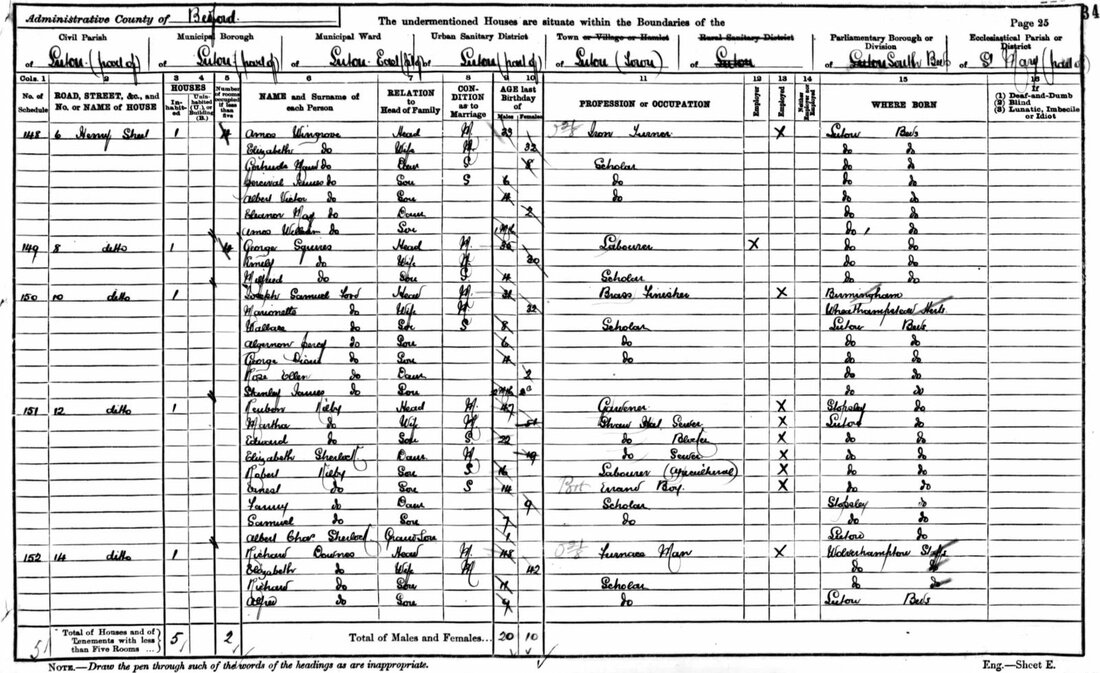 34
Administrative County of Bedford.
The undermentioned Houses are situate within the Boundaries of the
Page 25
Civil Parish
Municipal Borough
Municipal Ward
Urban Sanitary District
Town or Village or Hamlet
Rural Sanitary District
Parliamentary Borough or Division
Ecclesiastical Parish or District
of Luton (part of
of Luton (part of
of Luton East (pt of
of Luton (part of
of Luton (Town)
of Luton
of Luton South Beds
of St Mary (part of
Cols. 1 2 3 4 5 6 7 8 9 10 11 12 13 14 15 16
No. of Schedule
ROAD, STREET, &c., and No. or NAME of HOUSE
HOUSES
Inhabited
Uninhabited (U.) or Building (B.)
Number of rooms occupied if less than five
NAME and Surname of each Person
RELATION to Head of Family
CONDITION as to Marriage
AGE last Birthday of
Males
Females
PROFESSION or OCCUPATION
Employer
Employed
Neither Employer nor Employed
WHERE BORN
If
(1) Deaf-and-Dumb
(2) Blind
(3) Lunatic, Imbecile or Idiot
148 6 Henry Street 1 4 Amos Wingrove Head M 33 Iron Turner X Luton Beds
Elizabeth do Wife M 32 do do
Gertrude Maud do Daur S 8 Scholar do do
Percival James do Son S 6 do do do
Albert Victor do Son 4 do do do
Eleanor May do Daur 2 do do
Amos William do Son do do
149 8 ditto 1 4 George Squires Head M Labourer X do do
Emily do Wife M 30 do do
Wilfred do Son S 4 Scholar do do
150 10 ditto 1 Joseph Samuel Lord Head M 31 Brass Finisher X Birmingham
Marionette do Wife M 32 Wheathampstead Herts
Wallace do Son S 8 Scholar Luton Beds
Algernon Percy do Son 6 do do do
George do Son 4 do do
Rose Ellen do Daur 2 do do
Stanley James do Son do do
151 12 ditto 1 Reuben Kilby Head M 47 Gardener X Stopsley do
Martha do Wife M 51 Straw Hat Sewer X Luton do
Edward do Son S 22 do Blocker X do do
Elizabeth Sherlock Daur M 19 do Sewer X do do
Robert Kilby Son S 16 Labourer (Agricultural) X do do
Ernest do Son S 14 Errand Boy X do do
Fanny do Daur 9 Scholar Stopsley do
Samuel do Son 7 do do do
Albert Chas Sherlock Grandson 1 Luton do
152 14 ditto 1 Richard Downes Head M 48 Furnace Man X Wolverhampton Staffs
Elizabeth do Wife M 42 do do
Richard do Son Scholar do do
Alfred do Son 9 do Luton Beds
5
Total of Houses and of Tenements with less than Five Rooms ... 5 2
Total of Males and Females... 20 10
NOTE.—Draw the pen through such of the words of the headings as are inappropriate.
Eng.—Sheet E.